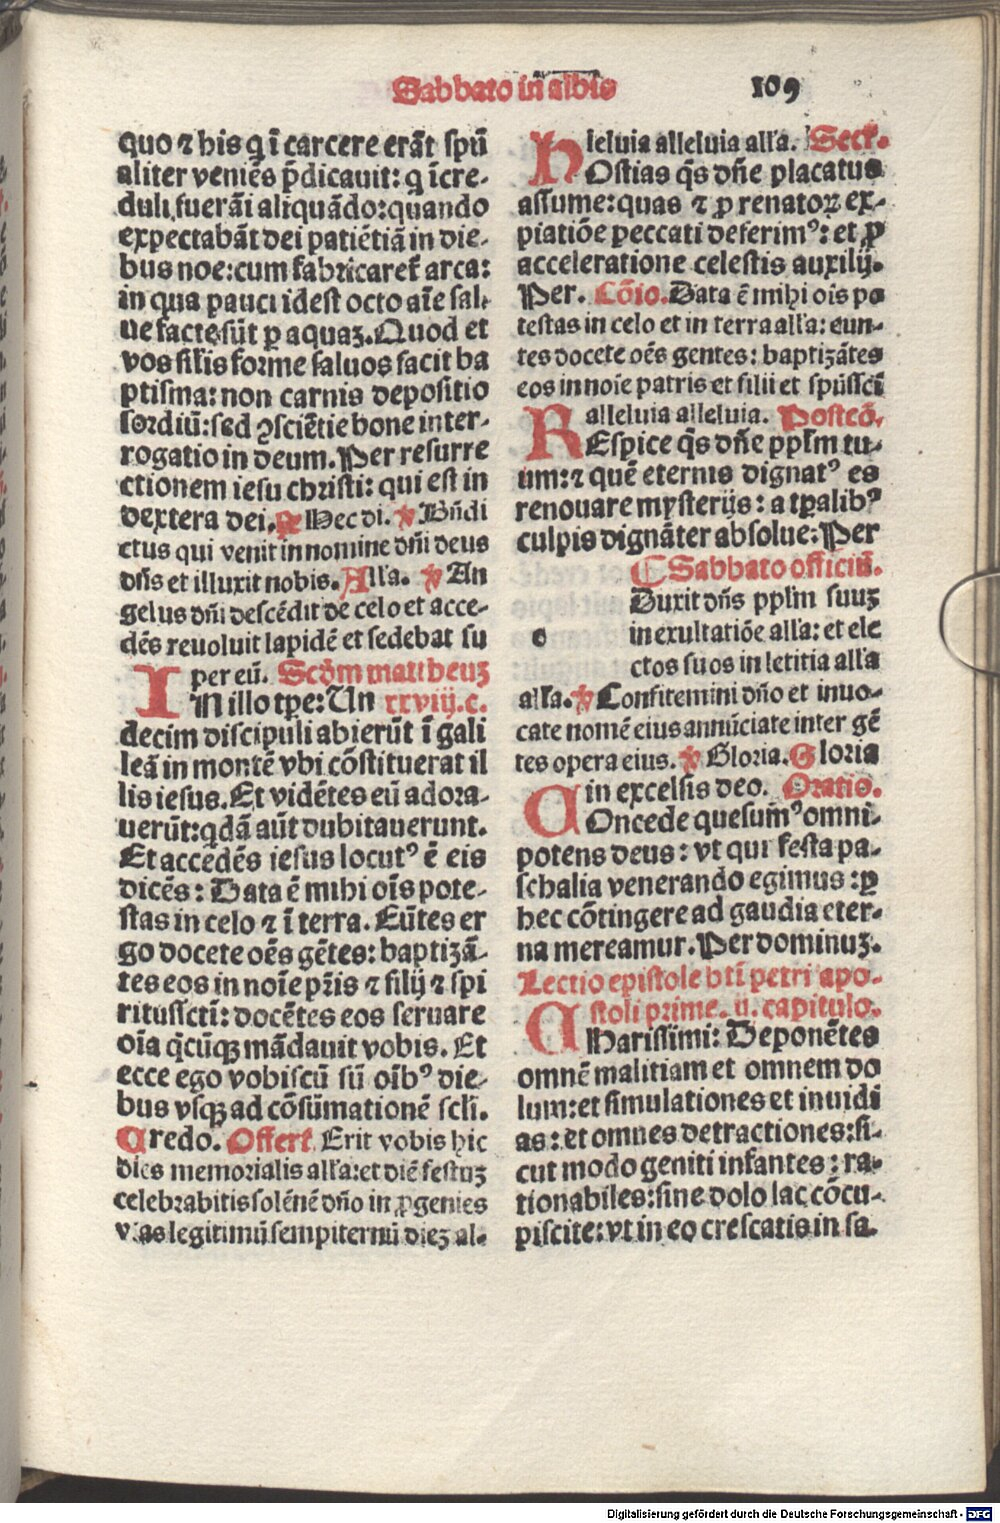 Sabbato in albis
109
quo ⁊ his q̇ ī carcere erāt spū
aliter veniēs p̄dicauit: q̇ īcre-
duli fuerāt aliquādo: quando
expectabāt dei patiētiā in die-
bus noe: cum fabricaret̄ arca:
in qua pauci idest octo aīe sal-
ue facte sūt ꝑ aquaꝫ. Quod et
vos sil̄is forme saluos facit ba
ptisma: non carnis depositio
sordiū: sed ꝯsciētie bone inter-
rogatio in deum. Per resurre
ctionem iesu christi: qui est in
dextera dei. ℟ Hec di. ℣ Bn̄di
ctus qui venit in nomine dn̄i deus
dn̄s et illuxit nobis. All'a. ℣ An
gelus dn̄i descēdit de celo et acce-
dēs reuoluit lapidē et sedebat su
per eū. Scd̄m mattheuꝫ
IN illo tꝑe: Un xxviij.c.
decim discipuli abierūt ī gali
leā in montē vbi cōstituerat il
lis iesus. Et vidētes eū adora-
uerūt: q̇dā aūt dubitauerunt.
Et accedēs iesus locutꝰ ē eis
dicēs: Data ē mihi oīs pote-
stas in celo ⁊ ī terra. Eūtes er
go docete oēs gētes: baptizā-
tes eos in noīe pr̄is ⁊ filij ⁊ spi
ritussctī: docētes eos seruare
oīa q̄cūqꝫ mādauit vobis. Et
ecce ego vobiscū sū oībꝰ die-
bus vsqꝫ ad cōsūmationē scl̄i.
Credo. Offert̄. Erit vobis hic
dies memorialis all'a: et diē festuꝫ
celebrabitis solēnē dn̄o in ꝓgenies
v̄ras legitimū sempiternū dieꝫ al-
leluia alleluia all'a. Secr̄.
HOstias q̄s dn̄e placatus
assume: quas ⁊ ꝓ renatoꝝ ex-
piatiōe peccati deferimꝰ: et ꝓ
acceleratione celestis auxilij.
Per. Cōio. Data ē mihi oīs po
testas in celo et in terra all'a: eun-
tes docete oēs gentes: baptizātes
eos in noīe patris et filii et spūsscī
alleluia alleluia. Postcō.
REspice q̄s dn̄e ppl̄m tu-
um: ⁊ quē eternis dignatꝰ es
renouare mysterijs: a tꝑalibꝰ
culpis dignāter absolue: Per
¶ Sabbato officiū.
Duxit dn̄s ppl̄m suuꝫ
e in exultatiōe all'a: et ele
ctos suos in letitia all'a
all'a. ℣ Confitemini dn̄o et inuo-
cate nomē eius annūciate inter gē
tes opera eius. ℣ Gloria. Gloria
in excelsis deo. Oratio.
COncede quesumꝰ omni-
potens deus: vt qui festa pa-
schalia venerando egimus: ꝑ
hec cōtingere ad gaudia eter-
na mereamur. Per dominuꝫ.
Lectio epistole btī petri apo-
stoli prime. ij. capitulo.
CHarissimi: Deponētes
omnē malitiam et omnem do
lum: et simulationes et inuidi
as: et omnes detractiones: si-
cut modo geniti infantes: ra-
tionabiles: sine dolo lac cōcu-
piscite: vt in eo crescatis in sa-
Digitalisierung gefördert durch die Deutsche Forschungsgemeinschaft - DFG